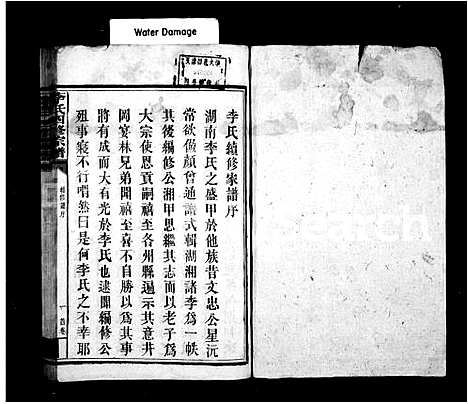 Water Damage
李氏續修家譜序
湖南李氏之盛甲於他族昔文忠公星沅
常欲倣顏曾通譜式輯湖湘諸李爲一帙
其後編修公湘甲思繼其志而以老子爲
大宗使恩貢嗣禧至各州縣遍示其意并
岡宴林兄弟聞禧至喜不自勝以爲其事
將有成而大有光於李氏也逮聞編修公
殂事寢不行喟然曰是何李氏之不幸耶
李氏四修宗譜
續修譜序
一 首卷